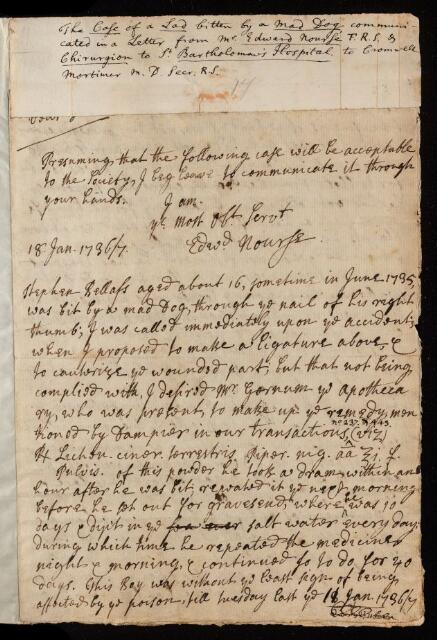 The Case of a Lad bitten by a Mad Dog communi-
cated in a Letter from Mr. Edward Nourse F.R.S. &
Chirurgion to St. Bartholomew's Hospital to Cromwell
Mortimer M. D. Secr. R.S.
17
Presuming that the following case will be acceptable
to the Society, I beg leave to communicate it through
your hands.
I am.
ye most Obt. Servt
18 Jan. 1736/7.
Edwd Nourse.
Stephen Bellass aged about 16, sometime in June 1735,
was bit by a mad Dog, through ye nail of his right
thumb; I was called immediately upon ye accident;
when I proposed to make a ligature above, &
to cauterize ye wounded part, but that not being
complied with, I desired Mr. Gernum ye Apotheca
ry, who was present, to make up ye remedy, men
tioned by Dampier in our transactions, (viz)
no. 237. p. 443.
℞ Lichen. ciner. terrestris. Piper. nig. aa ʒj. f.
Pulvis. of this powder he took a dram within an
hour after he was bit, repeated it ye next morning
before he set out for gravesend; where he was 10
days & dipt in ye salt water every day;
during which time he repeated the medicine
night & morning, & continued so to do for 40
days. This Boy was without ye least sign of being
affected by ye poison, till tuesday last ye 18 Jan. 1736/7